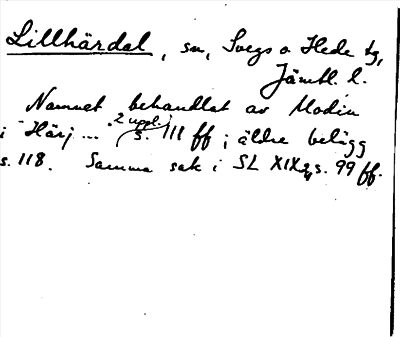 Lillhärdal, sn, Svegs o Hede tg,
Jämtl. l.
Namnet behandlat av Modin
i "Härj..." 2 uppl. s. 111 ff; äldre belägg
s. 118. Samma sak i SL XIX, s. 99 ff.